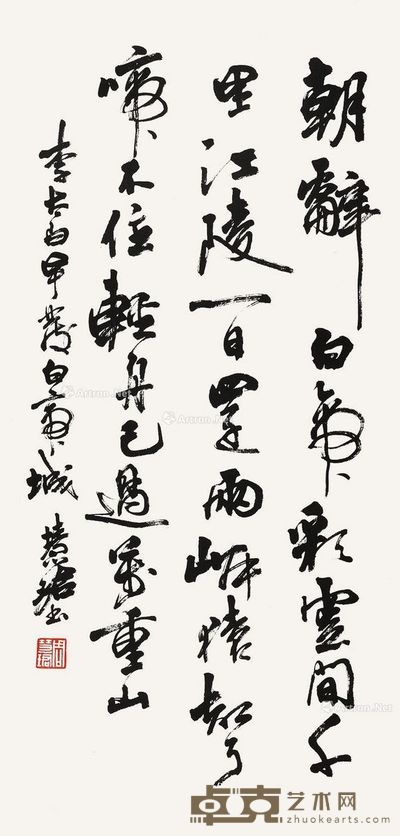 朝辭白帝彩雲間千
里江陵一日還兩岸猿聲
啼不住輕舟已過萬重山
李太白早發白帝城 慧珺書
Artron.Net
卓克艺术网
zhuokearts.com